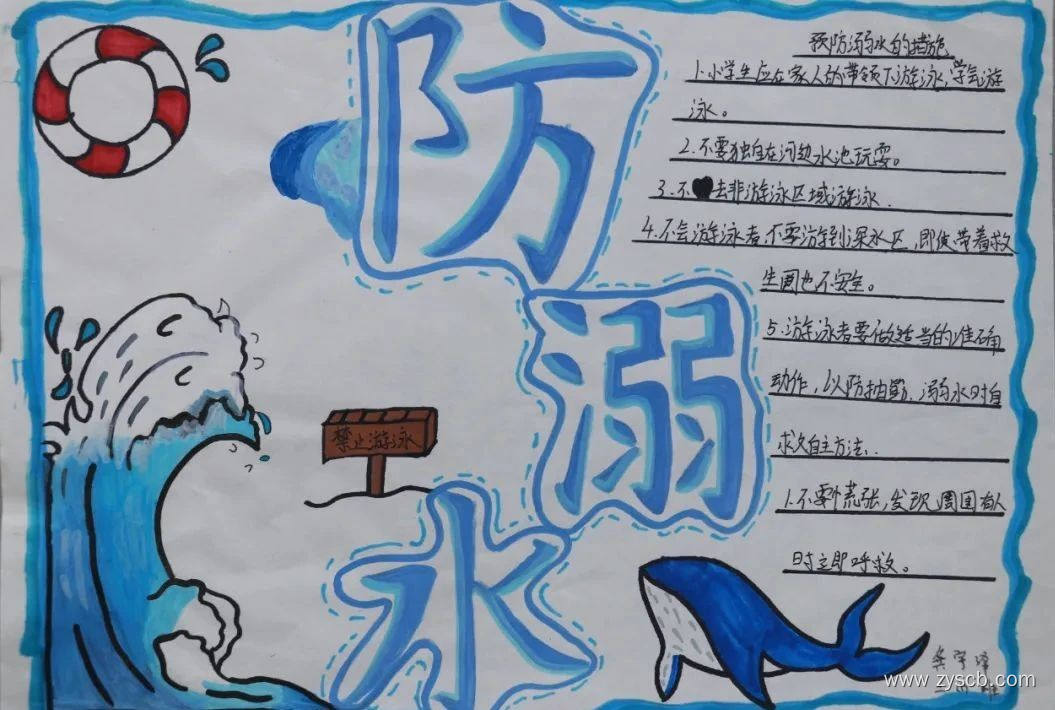 防
溺
水
禁止游泳
预防溺水的措施
1.小学生应在家人的带领下游泳,学气游
泳。
2.不要独自在河边水池玩耍。
3.不去非游泳区域游泳.
4.不会游泳者,不要游到深水区,即使带着救
生圈也不安全。
5.游泳者要做适当的准确
动作,以防抽筋.溺水时自
求久自主方法..
1.不要慌张,发现周围有人
时立即呼救。
龚宇泽
www.zyscb.com